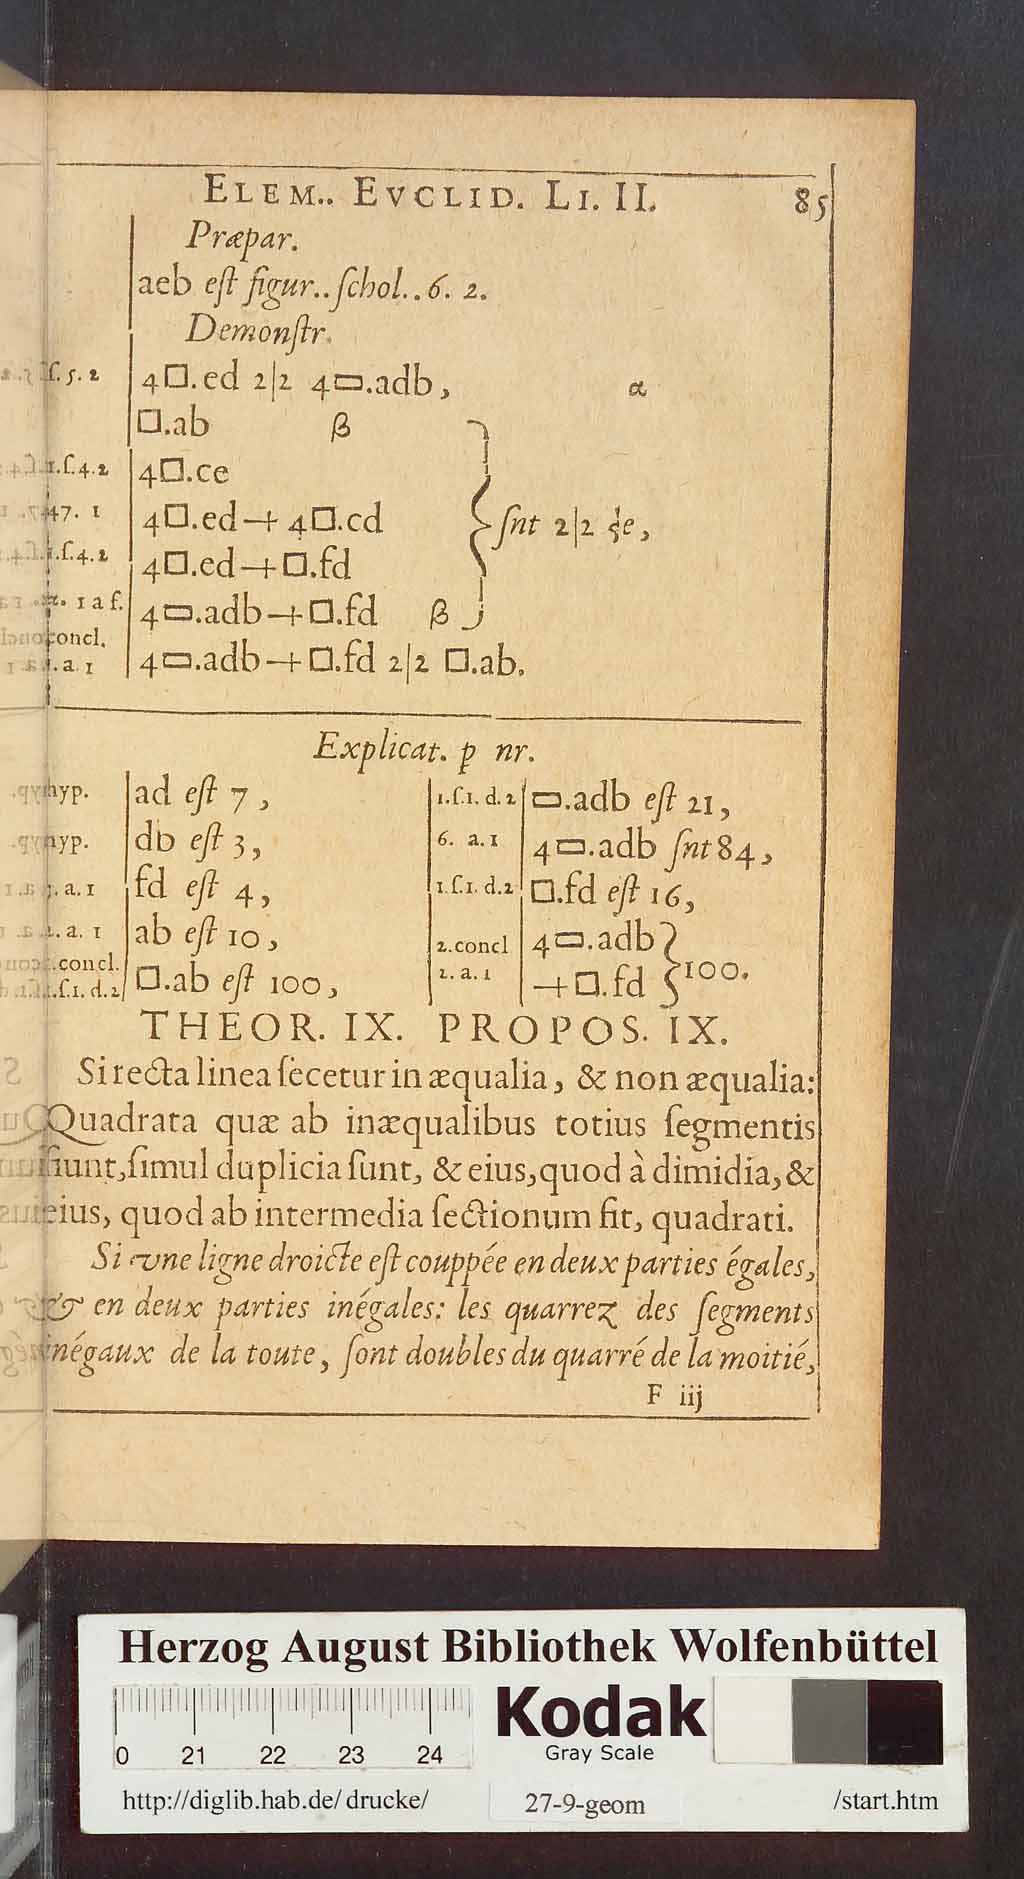 ELEM.. EVCLID. LI. II. 85
Præpar.
aeb eſt figur.. ſchol.. 6. 2.
Demonſtr.
ſ. 5. 2 4□.ed 2|2 4▭.adb, α
□.ab β
1.ſ.4.2 4□.ce
47. 1 4□.ed + 4□.cd ſnt 2|2 ,
1.ſ.4.2 4□.ed + □.fd
1 a f. 4▭.adb + □.fd β
concl.
.a. 1 4▭.adb + □.fd 2|2 □.ab.
Explicat. p nr.
hyp. ad eſt 7, 1.ſ.1. d.2 ▭.adb eſt 21,
hyp. db eſt 3, 6. a.1 4▭.adb ſnt 84,
. a. 1 fd eſt 4, 1.ſ.1. d.2 □.fd eſt 16,
2. a. 1 ab eſt 10, 2.concl 4▭.adb
.concl.
.ſ.1. d.2 □.ab eſt 100, 2. a.1 + □.fd 100.
THEOR. IX. PROPOS. IX.
Si recta linea ſecetur in æqualia, & non æqualia:
Quadrata quæ ab inæqualibus totius ſegmentis
fiunt, ſimul duplicia ſunt, & eius, quod à dimidia, &
eius, quod ab intermedia ſectionum fit, quadrati.
Si vne ligne droicte eſt couppée en deux parties égales,
& en deux parties inégales: les quarrez des ſegments
inégaux de la toute, ſont doubles du quarré de la moitié,
F iij
Herzog August Bibliothek Wolfenbüttel
0 21 22 23 24
Kodak
Gray Scale
http://diglib.hab.de/ drucke/ 27-9-geom /start.htm